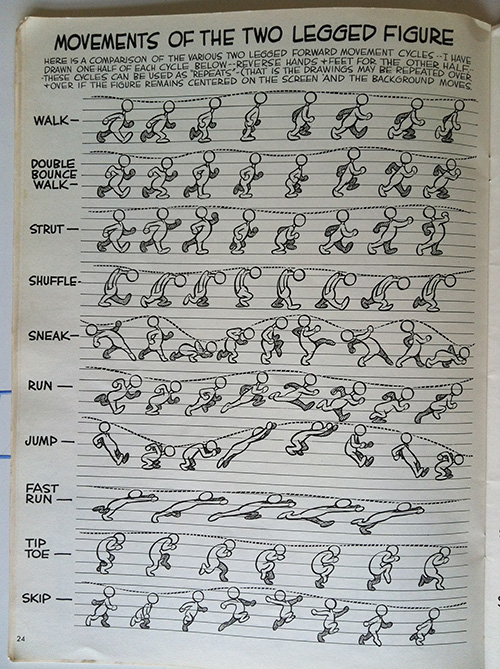 MOVEMENTS OF THE TWO LEGGED FIGURE
HERE IS A COMPARISON OF THE VARIOUS TWO LEGGED FORWARD MOVEMENT CYCLES -- I HAVE
DRAWN ONE HALF OF EACH CYCLE BELOW -- REVERSE HANDS + FEET FOR THE OTHER HALF --
THESE CYCLES CAN BE USED AS "REPEATS" - (THAT IS THE DRAWINGS MAY BE REPEATED OVER
+ OVER IF THE FIGURE REMAINS CENTERED ON THE SCREEN AND THE BACKGROUND MOVES.
WALK —
DOUBLE
BOUNCE
WALK —
STRUT —
SHUFFLE -
SNEAK —
RUN —
JUMP —
FAST
RUN —
TIP
TOE —
SKIP —
24